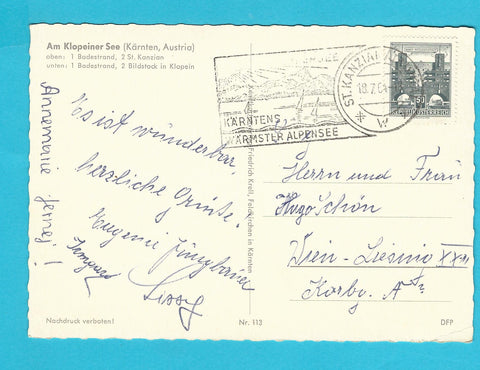 Am Klopeiner See (Kärnten, Austria)
oben: 1 Badestrand, 2 St. Kanzian
unten: 1 Badestrand, 2 Bildstock in Klopein
KÄRNTENS
WÄRMSTER ALPENSEE
ST. KANZIAN
18.7.64
50
REPUBLIK ÖSTERREICH
Es ist wunderbar,
herzliche Grüße.
Eugenie Jungbauer
Irmgard
Sissy
Annemarie
Friedrich Kroll, Feldkirchen in Kärnten
Herrn und Frau
Hugo Schön
Wien - Liesing XXIII
Nachdruck verboten!
Nr. 113
DFP